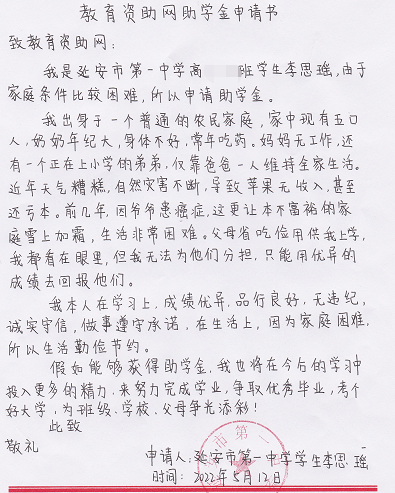 教育资助网助学金申请书
致教育资助网：
我是延安市第一中学高 班学生李思瑶，由于
家庭条件比较困难，所以申请助学金。
我出身于一个普通的农民家庭，家中现有五口
人，奶奶年纪大，身体不好，常年吃药。妈妈无工作，还
有一个正在上小学的弟弟，仅靠爸爸一人维持全家生活。
近年天气糟糕，自然灾害不断，导致苹果无收入，甚至
还亏本。前几年，因爷爷患癌症，这更让本不富裕的家
庭雪上加霜，生活非常困难。父母省吃俭用供我上学，
我都看在眼里，但我无法为他们分担，只能用优异的
成绩去回报他们。
我本人在学习上，成绩优异，品行良好，无违纪，
诚实守信，做事遵守承诺，在生活上，因为家庭困难，
所以生活勤俭节约。
假如能够获得助学金，我也将在今后的学习中
投入更多的精力，来努力完成学业，争取优秀毕业，考个
好大学，为班级、学校、父母争光添彩！
此致
敬礼
申请人：延安市第一中学学生李思瑶
时间：2022年5月12日
市第一